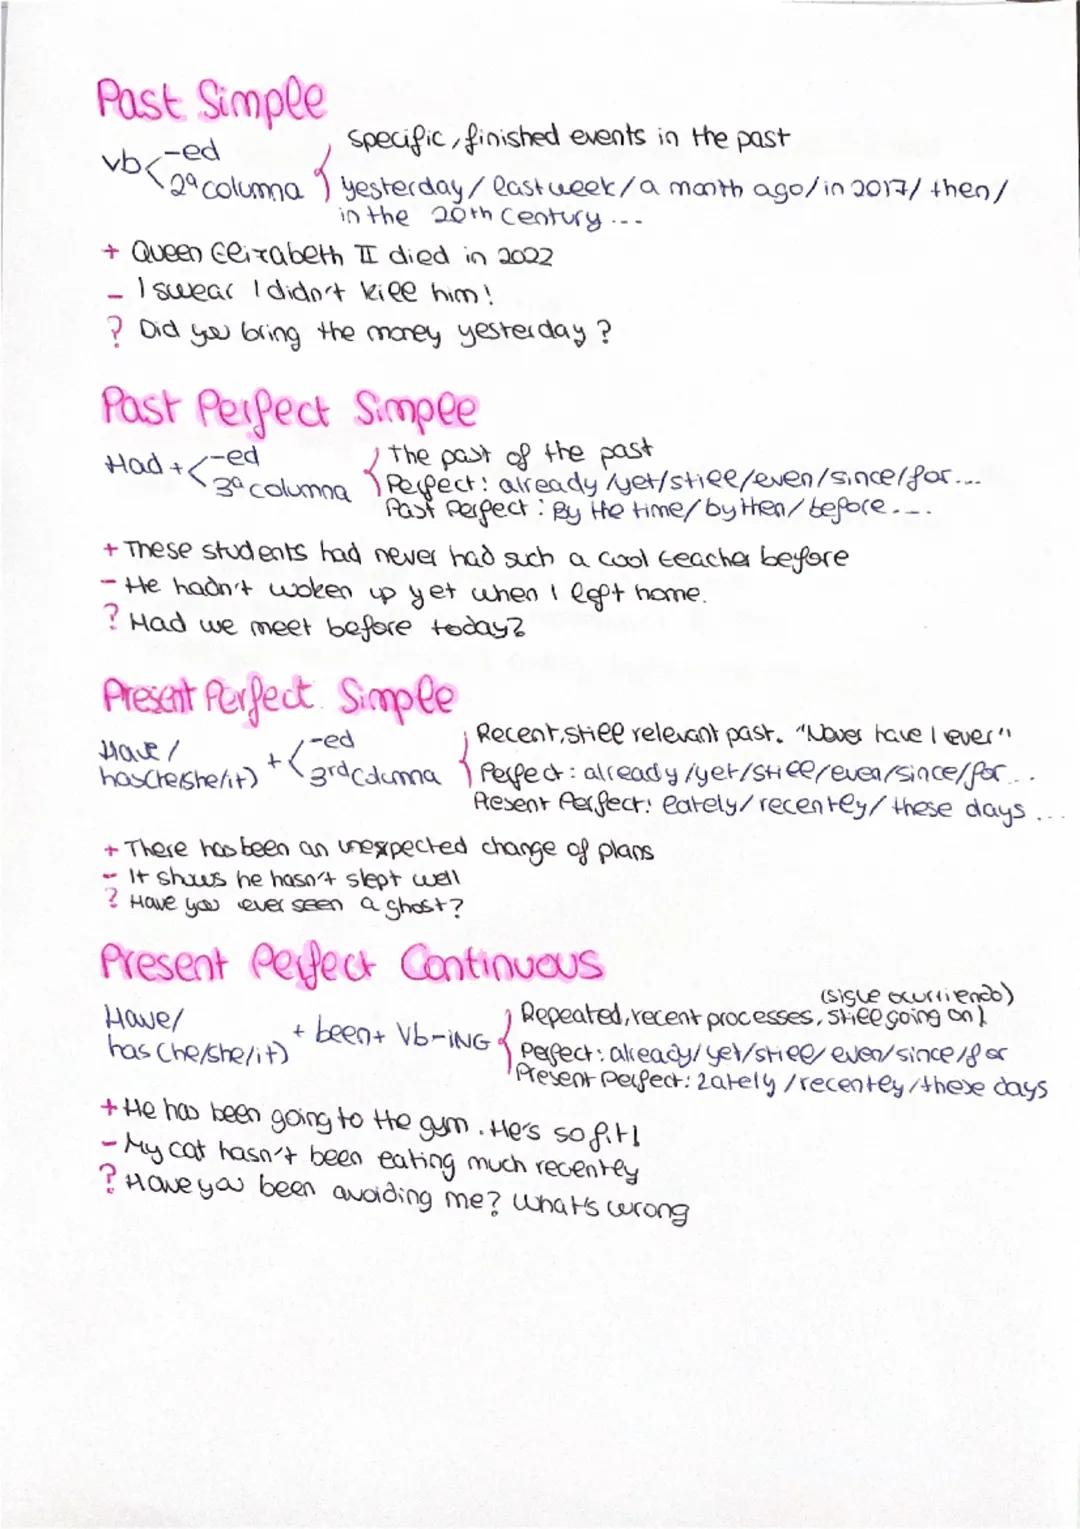 Past Simple
vb -ed specific, finished events in the past
2ª columna yesterday/last week/a month ago/in 2017/then/
in the 20th Century ...
+ Queen Elizabeth II died in 2022
- I swear I didn't kill him!
? Did you bring the money yesterday?
Past Perfect Simple
Had + -ed The past of the past
3ª columna Perfect: already/yet/still/even/since/for...
Past Perfect: By the time/by then/before....
+ These students had never had such a cool teacher before
- He hadn't woken up yet when I left home.
? Had we meet before today?
Present Perfect Simple
Have/ + -ed Recent, still relevant past. "Never have I ever"
has(he/she/it) 3rd Columna Perfect: already/yet/still/even/since/for...
Present Perfect: lately/recently/these days...
+ There has been an unexpected change of plans
- It shows he hasn't slept well
? Have you ever seen a ghost?
Present Perfect Continuous
(sigue ocurriendo)
Have/ + been + Vb-ING Repeated, recent processes, still going on
has (he/she/it) Perfect: already/yet/still/even/since/for
Present Perfect: Lately/recently/these days
+ He has been going to the gym. He's so fit!
- My cat hasn't been eating much recently
? Have you been avoiding me? What's wrong